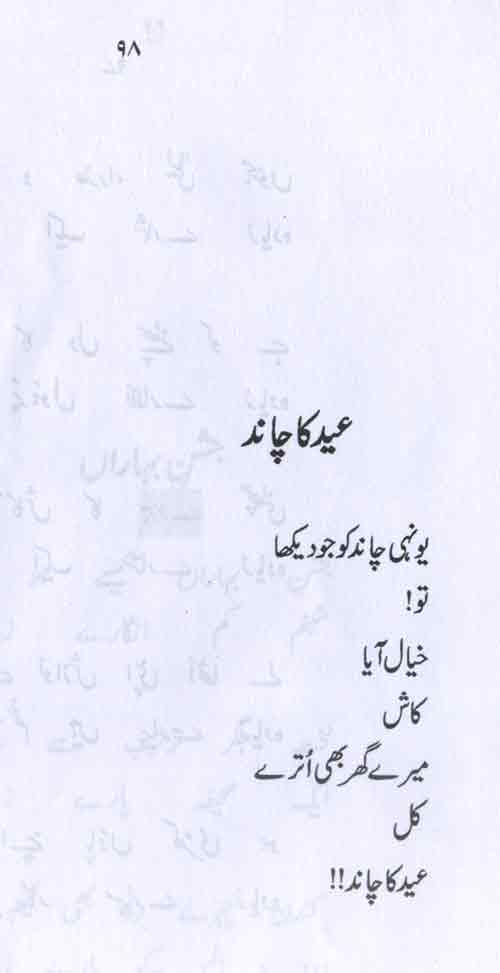 ۹۸
عید کا چاند
یونہی چاند کو جو دیکھا
تو!
خیال آیا
کاش
میرے گھر بھی اُترے
کل
عید کا چاند!!